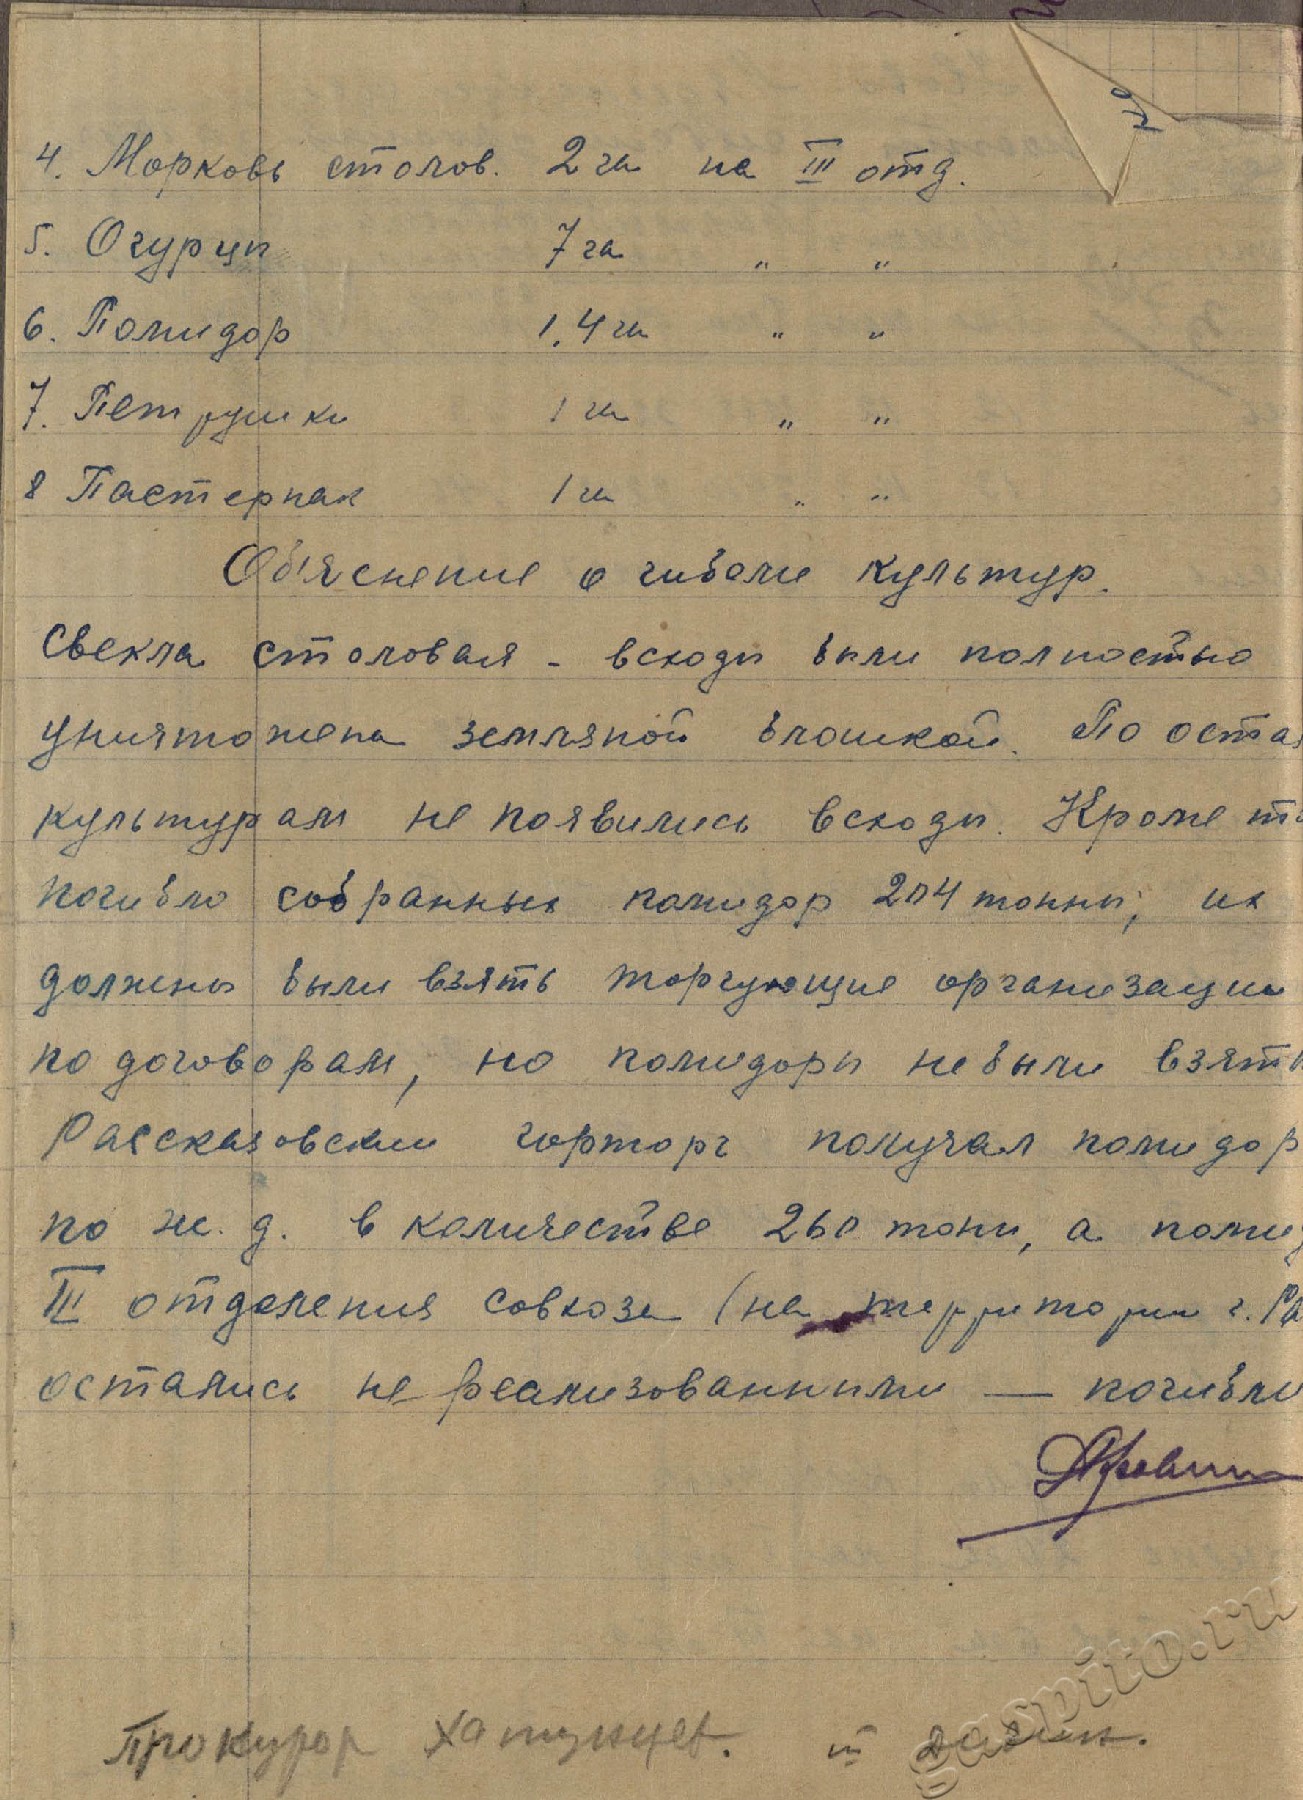 4. Морковь столов. 2 га на III отд.
5. Огурцы 7 га " "
6. Помидор 1,4 га " "
7. Петрушки 1 га " "
8 Пастернак 1 га " "
Об'яснение о гибели культур.
Свекла столовая - всходы были полностью
уничтожена земляной блошкой. По оста
культурам не появились всходы. Кроме т
погибло собранных помидор 204 тонны, их
должны были взять торгующие организации
по договорам, но помидоры не были взяты
Рассказовский горторг получал помидор
по ж. д. в количестве 260 тонн, а помид
III отделения совхоза (на территории г. Ра
остались не реализованными — погибли
Прокурор Хатунцев.
gaspito.ru